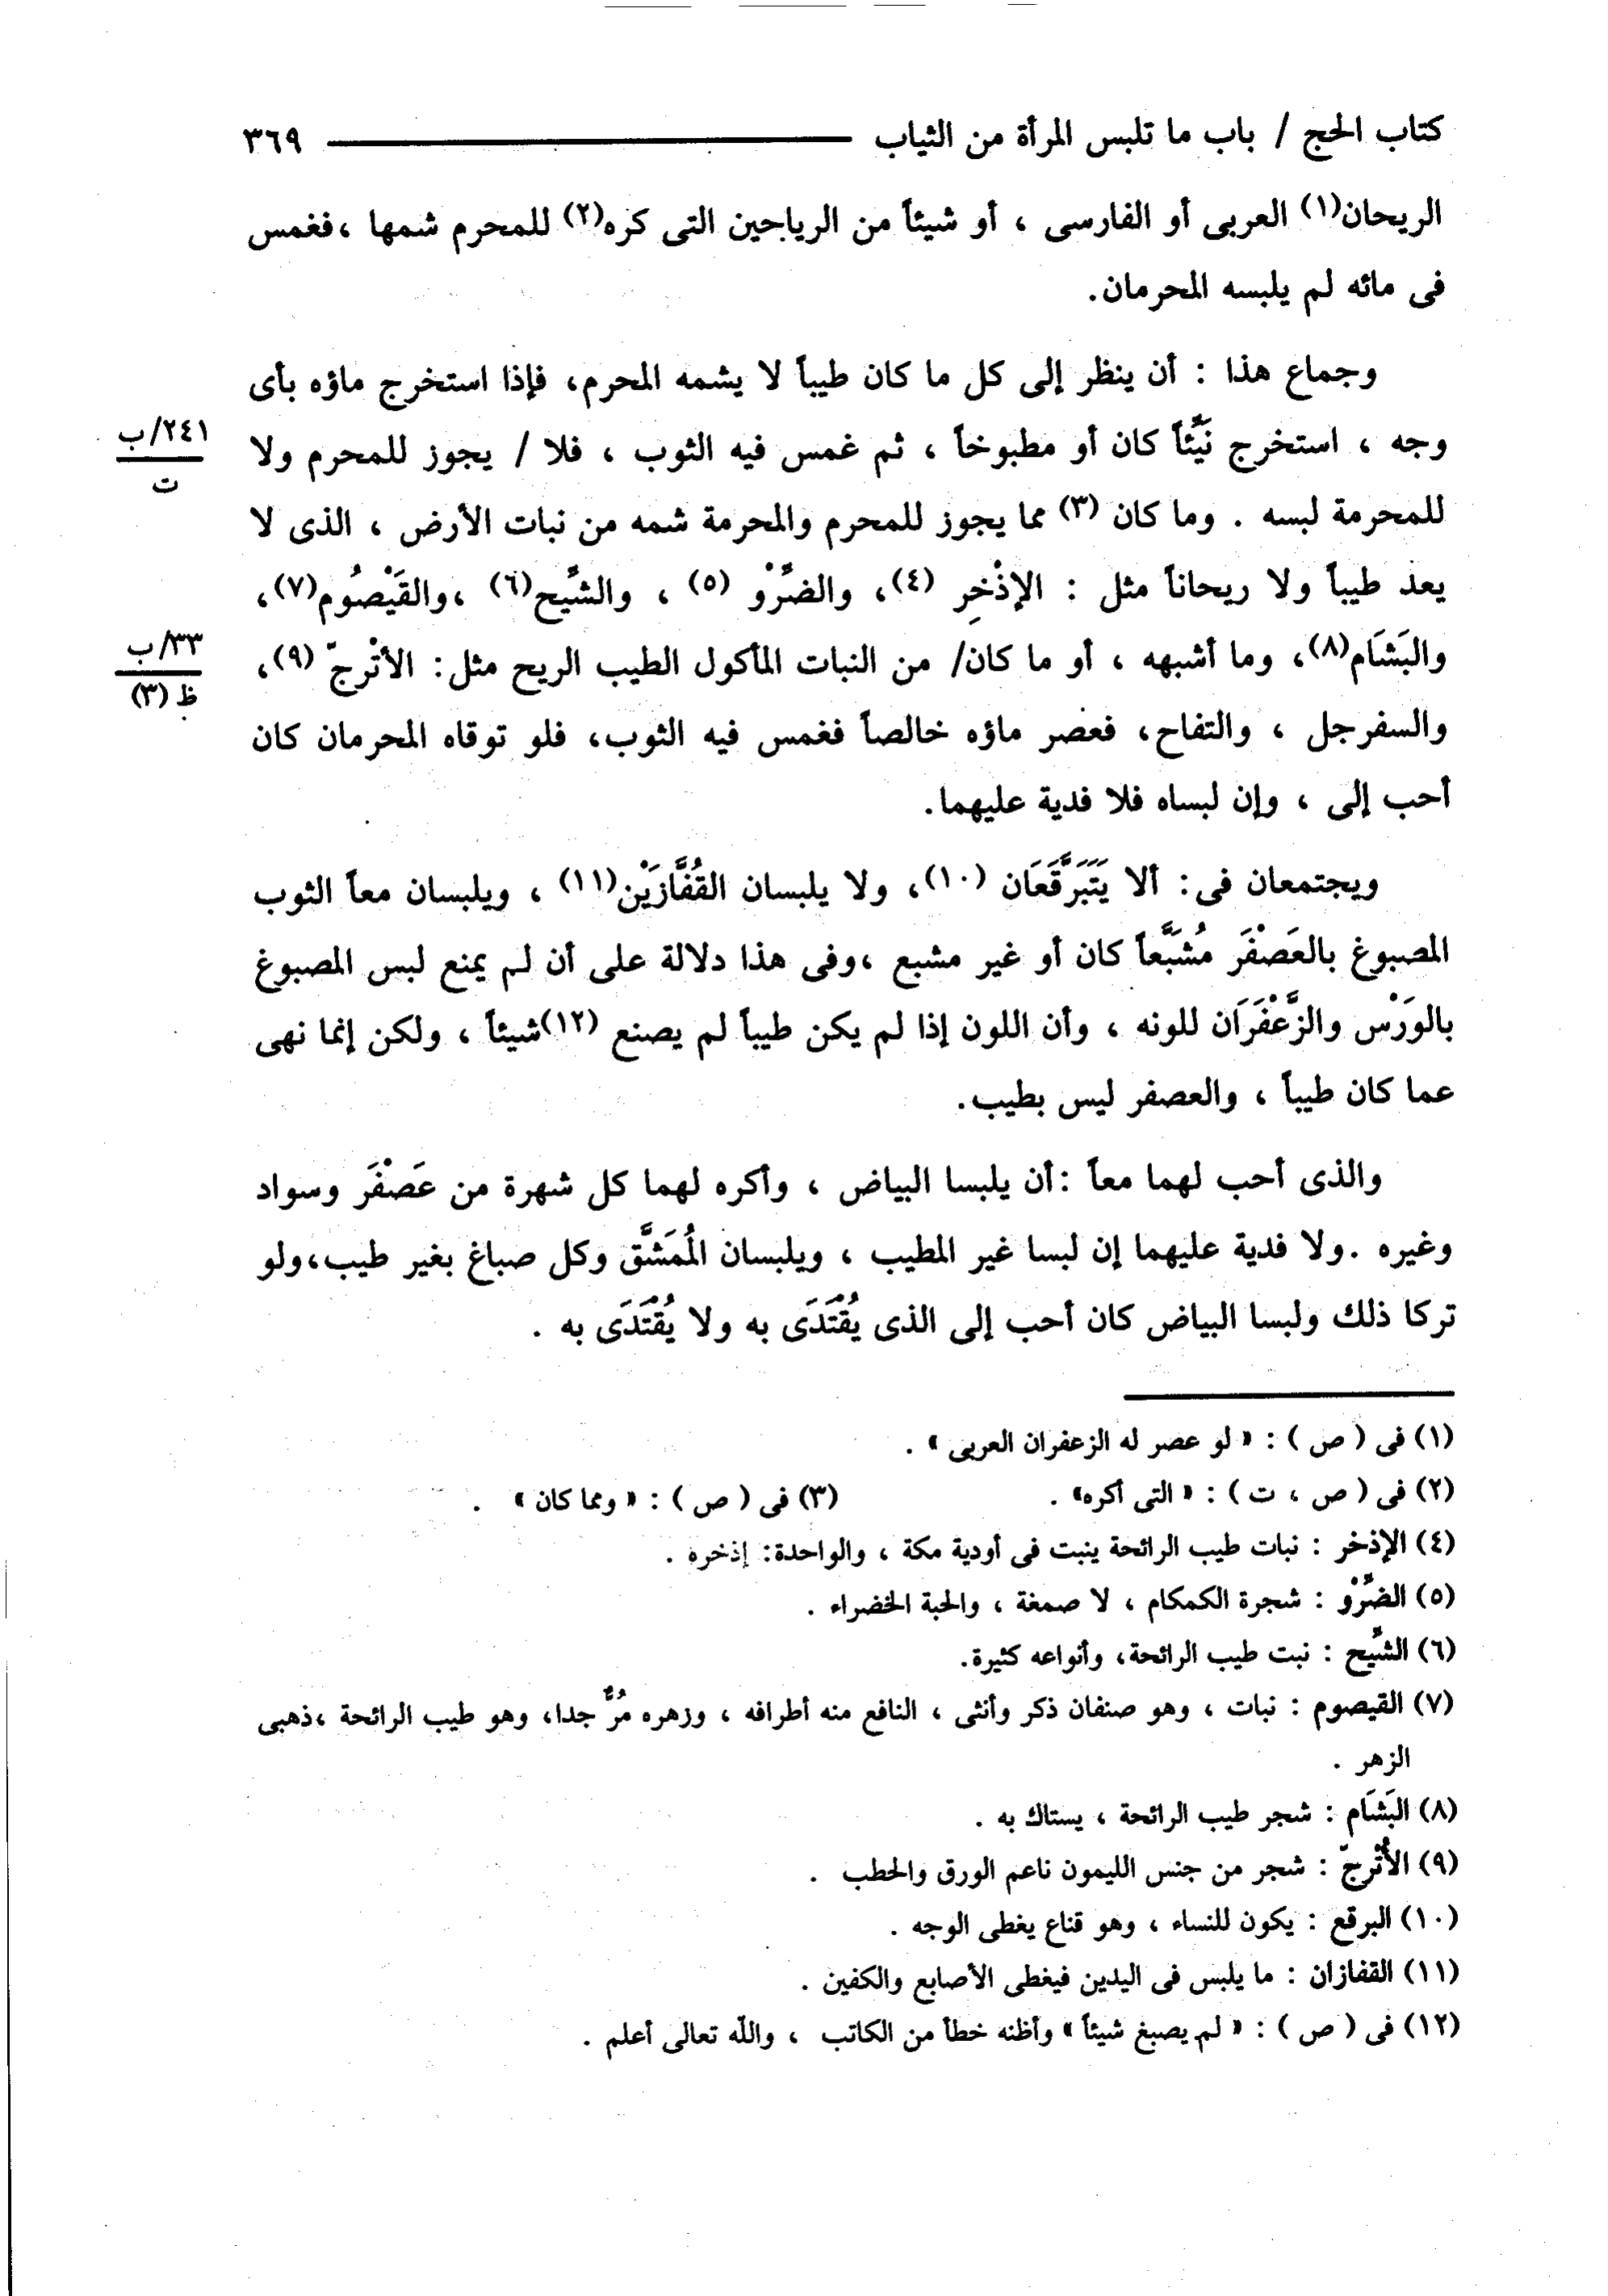 كتاب الحج / باب ما تلبس المرأة من الثياب ٣٦٩
الريحان(١) العربى أو الفارسى ، أو شيئاً من الرياحين التى كره(٢) للمحرم شمها ،فغمس
فى مائه لم يلبسه المحرمان.
وجماع هذا : أن ينظر إلى كل ما كان طيباً لا يشمه المحرم، فإذا استخرج ماؤه بأى
وجه ، استخرج نَيِّئاً كان أو مطبوخاً ، ثم غمس فيه الثوب ، فلا / يجوز للمحرم ولا
٢٤١/ب
ت
للمحرمة لبسه . وما كان (٣) مما يجوز للمحرم والمحرمة شمه من نبات الأرض ، الذى لا
يعد طيباً ولا ريحاناً مثل : الإذْخِر (٤)، والضِّرْو (٥) ، والشِّيح(٦) ،والقَيْصُوم(٧)،
والبَشَام(٨)، وما أشبهه ، أو ما كان/ من النبات المأكول الطيب الريح مثل: الأتْرجّ (٩)،
٣٣/ب
ظ (٣)
والسفرجل ، والتفاح، فعصر ماؤه خالصاً فغمس فيه الثوب، فلو توقاه المحرمان كان
أحب إلى ، وإن لبساه فلا فدية عليهما.
ويجتمعان فى: ألا يَتَبَرْقَعَان (١٠)، ولا يلبسان القُفَّازَيْن(١١) ، ويلبسان معاً الثوب
المصبوغ بالعَصْفَر مُشَبَّعاً كان أو غير مشبع ،وفى هذا دلالة على أن لم يمنع لبس المصبوغ
بالوَرْس والزَّعْفَرَان للونه ، وأن اللون إذا لم يكن طيباً لم يصنع (١٢)شيئاً ، ولكن إنما نهى
عما كان طيباً ، والعصفر ليس بطيب.
والذى أحب لهما معاً :أن يلبسا البياض ، وأكره لهما كل شهرة من عَصْفَر وسواد
وغيره .ولا فدية عليهما إن لبسا غير المطيب ، ويلبسان المُمَشَّق وكل صباغ بغير طيب،ولو
تركا ذلك ولبسا البياض كان أحب إلى الذى يُقْتَدَى به ولا يُقْتَدَى به .
(١) فى ( ص ) : « لو عصر له الزعفران العربى » .
(٢) فى ( ص ، ت ) : « التى أكره» . (٣) فى ( ص ) : « ومما كان » .
(٤) الإذخر : نبات طيب الرائحة ينبت فى أودية مكة ، والواحدة: إذخره .
(٥) الضِّرْو : شجرة الكمكام ، لا صمغة ، والحبة الخضراء .
(٦) الشِّيح : نبت طيب الرائحة، وأنواعه كثيرة.
(٧) القيصوم : نبات ، وهو صنفان ذكر وأنثى ، النافع منه أطرافه ، وزهره مُرٌّ جدا، وهو طيب الرائحة ،ذهبى
الزهر .
(٨) البَشَام : شجر طيب الرائحة ، يستاك به .
(٩) الأُتْرجّ : شجر من جنس الليمون ناعم الورق والحطب .
(١٠) البرقع : يكون للنساء ، وهو قناع يغطى الوجه .
(١١) القفازان : ما يلبس فى اليدين فيغطى الأصابع والكفين .
(١٢) فى ( ص ) : « لم يصبغ شيئاً » وأظنه خطأ من الكاتب ، والله تعالى أعلم .